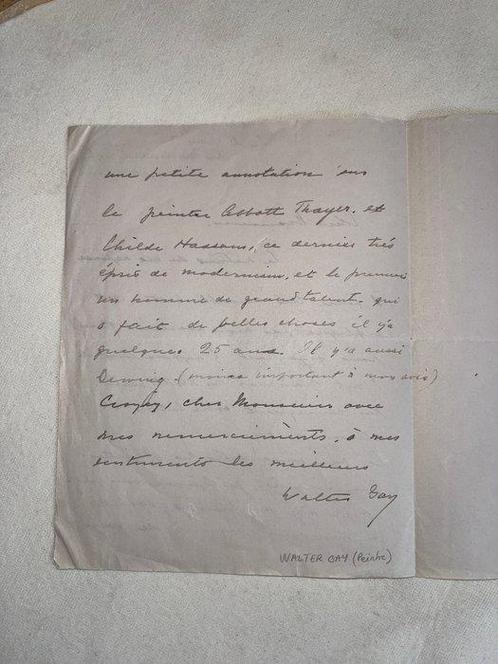 une petite annotation sur
le peintre Abbott Thayer, et
Childe Hassam, ce dernier très
épris de modernism, et le premier
un homme de grand talent, qui
a fait de belles choses il y a
quelques 25 ans. Il y a aussi
Dewing (moins important à mon avis)
Croyez, cher Monsieur avec
mes remerciements, à mes
sentiments les meilleurs
Walter Gay
WALTER GAY (Peintre)